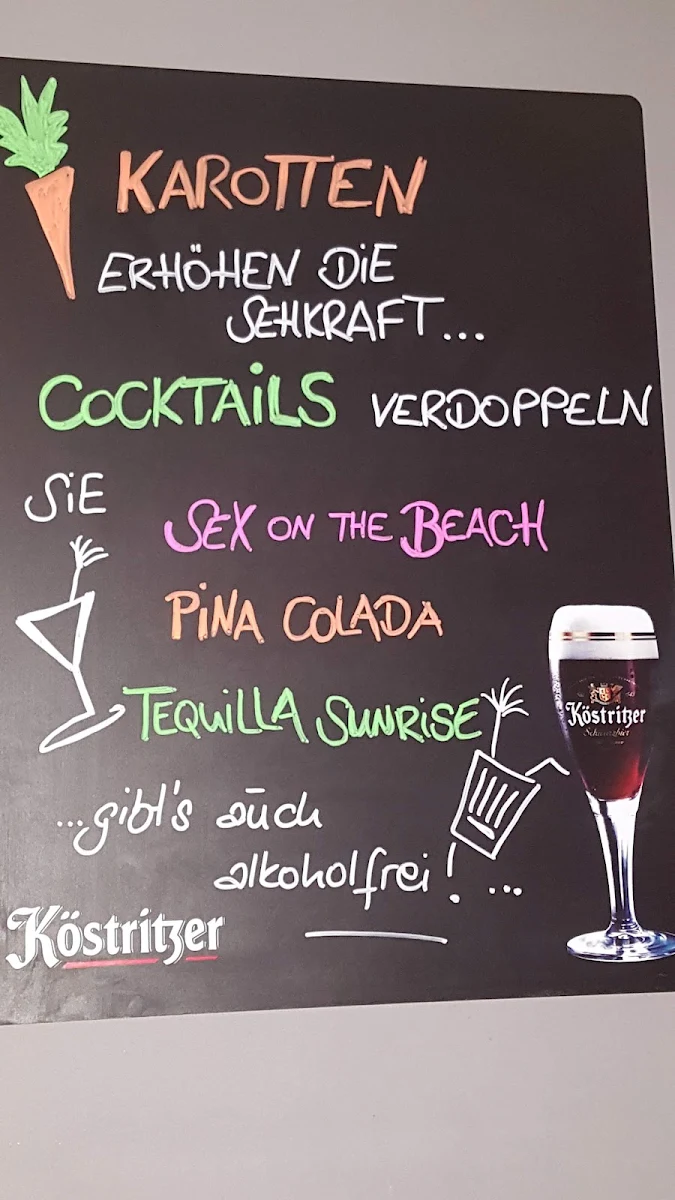 KAROTTEN
ERHÖHEN DiE
SEHKRAFT...
COCKTAiLS VERDOPPELN
SiE
SEX ON THE BEACH
PiNA COLADA
TEQUiLLA SUNRiSE
...gibt's auch
alkoholfrei! ...
Köstritzer
Köstritzer
Schwarzbier